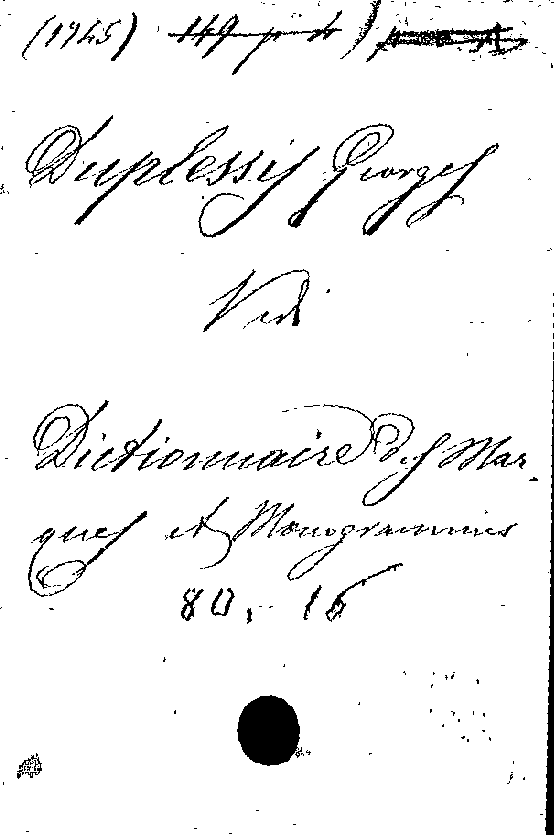 (1945)
Duplessis Georges
Vedi
Dictionnaire des Mar-
ques et Monogrammes
80, - 16